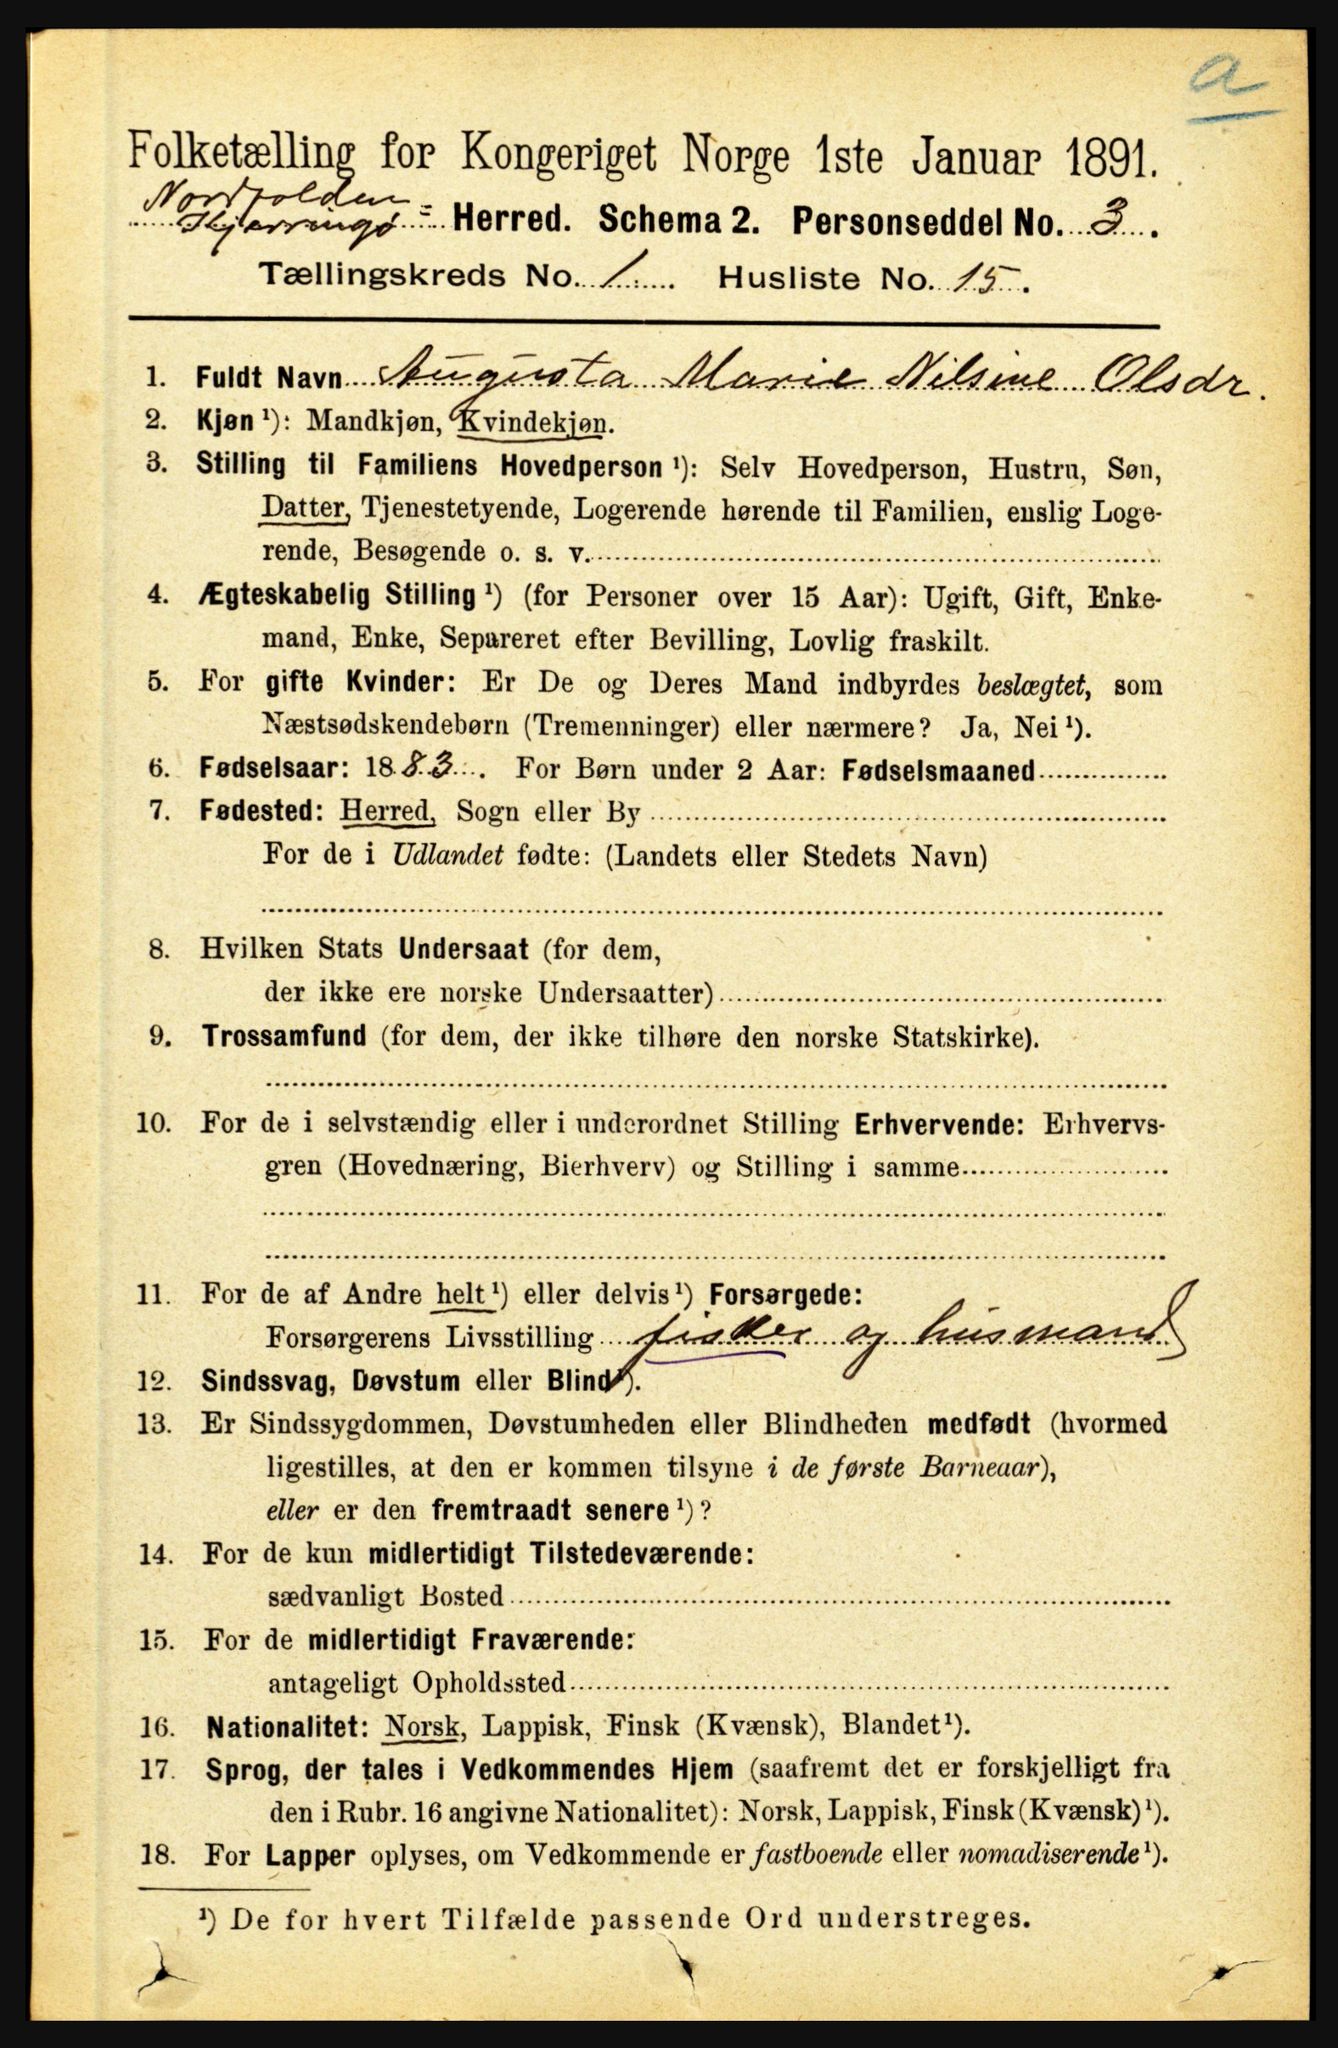 a
Folketælling for Kongeriget Norge 1ste Januar 1891.
Nordfolden-
Kjerringø Herred. Schema 2. Personseddel No. 3.
Tællingskreds No. 1. Husliste No. 15.
1. Fuldt Navn Augusta Marie Nilsine Olsdr.
2. Kjøn ¹): Mandkjøn, Kvindekjøn.
3. Stilling til Familiens Hovedperson ¹): Selv Hovedperson, Hustru, Søn,
Datter, Tjenestetyende, Logerende hørende til Familien, enslig Loge-
rende, Besøgende o. s. v.
4. Ægteskabelig Stilling ¹) (for Personer over 15 Aar): Ugift, Gift, Enke-
mand, Enke, Separeret efter Bevilling, Lovlig fraskilt.
5. For gifte Kvinder: Er De og Deres Mand indbyrdes beslægtet, som
Næstsødskendebørn (Tremenninger) eller nærmere? Ja, Nei ¹).
6. Fødselsaar: 1883. For Børn under 2 Aar: Fødselsmaaned
7. Fødested: Herred, Sogn eller By
For de i Udlandet fødte: (Landets eller Stedets Navn)
8. Hvilken Stats Undersaat (for dem,
der ikke ere norske Undersaatter)
9. Trossamfund (for dem, der ikke tilhøre den norske Statskirke).
10. For de i selvstændig eller i underordnet Stilling Erhvervende: Erhvervs-
gren (Hovednæring, Bierhverv) og Stilling i samme
11. For de af Andre helt ¹) eller delvis ¹) Forsørgede:
Forsørgerens Livsstilling fisker og husmand
12. Sindssvag, Døvstum eller Blind ¹).
13. Er Sindssygdommen, Døvstumheden eller Blindheden medfødt (hvormed
ligestilles, at den er kommen tilsyne i de første Barneaar),
eller er den fremtraadt senere ¹)?
14. For de kun midlertidigt Tilstedeværende:
sædvanligt Bosted
15. For de midlertidigt Fraværende:
antageligt Opholdssted
16. Nationalitet: Norsk, Lappisk, Finsk (Kvænsk), Blandet ¹).
17. Sprog, der tales i Vedkommendes Hjem (saafremt det er forskjelligt fra
den i Rubr. 16 angivne Nationalitet): Norsk, Lappisk, Finsk (Kvænsk) ¹).
18. For Lapper oplyses, om Vedkommende er fastboende eller nomadiserende ¹).
¹) De for hvert Tilfælde passende Ord understreges.